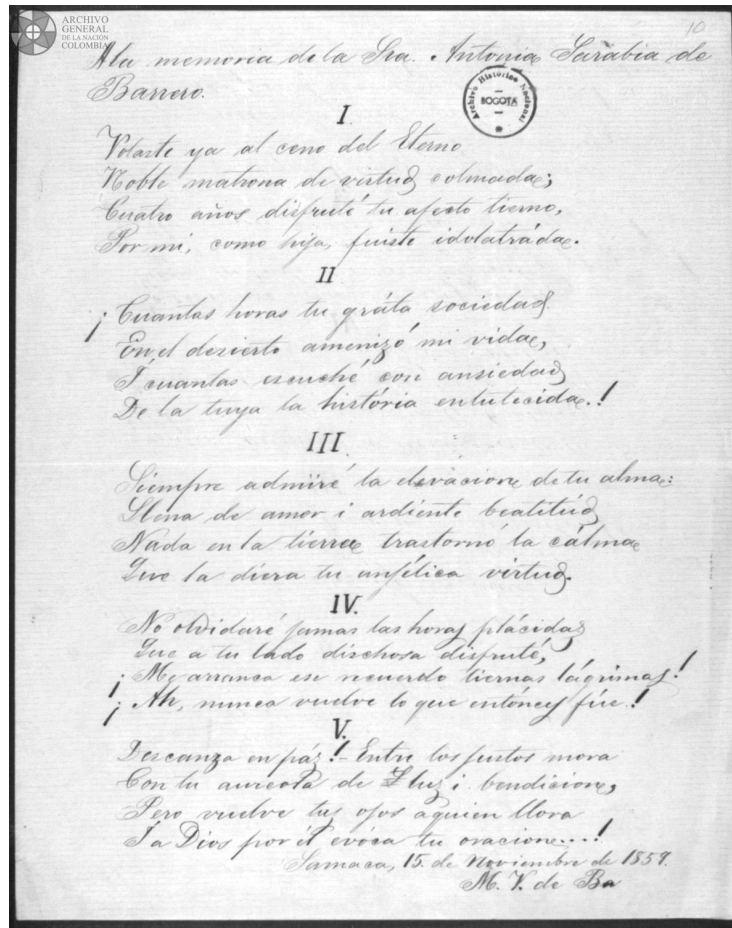 ARCHIVO
GENERAL
DE LA NACIÓN
COLOMBIA
10
A la memoria de la Sra. Antonia Sarabia de
Barrero.
Archivo Histórico Nacional
BOGOTA
I.
Volaste ya al ceno del Eterno
Noble matrona de virtud colmada;
Cuatro años disfruté tu afecto tierno,
Por mi, como hija, fuiste idolatráda.
II
¡Cuantas horas tu gráta sociedad
En el desierto amenizó mi vida,
I cuantas escuché con ansiedad
De la tuya la história entutecida.!
III.
Siempre admiré la elevacion de tu alma:
Llena de amor i ardiente beatitúd
Nada en la tierra trastornó la cálma
Que la diera tu anjélica virtud.
IV.
No olvidaré jamas las horas plácidas
Que a tu lado dischosa disfruté,
¡Me arranca ese recuerdo tiernas lágrimas!
¡Ah, nunca vuelve lo que entónces fúe!
V.
Descanza en páz!- Entre los justos mora
Con tu aureola de luz i bendicion,
Pero vuelve tus ojos a quien llora
I a Dios por él evóca tu oracion...!
Samaca, 15. de Noviembre de 1859.
M. V. de Ba